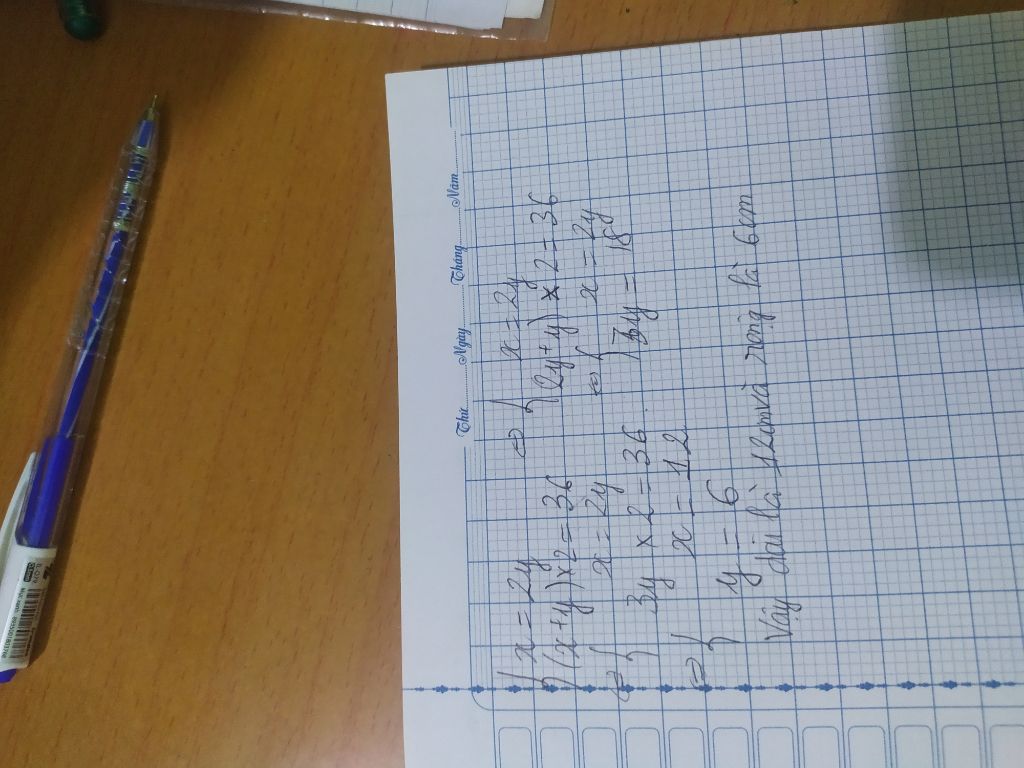 Thứ............Ngày............Tháng............Năm............
{ x = 2y ⇔ { x = 2y
(x+y)x2 = 36 (2y+y)x2 = 36
⇔ { x = 2y ⇔ { x = 2y
3y x 2 = 36 3y = 18
⇔ { x = 12
y = 6
Vậy dài là 12cm và rộng là 6cm